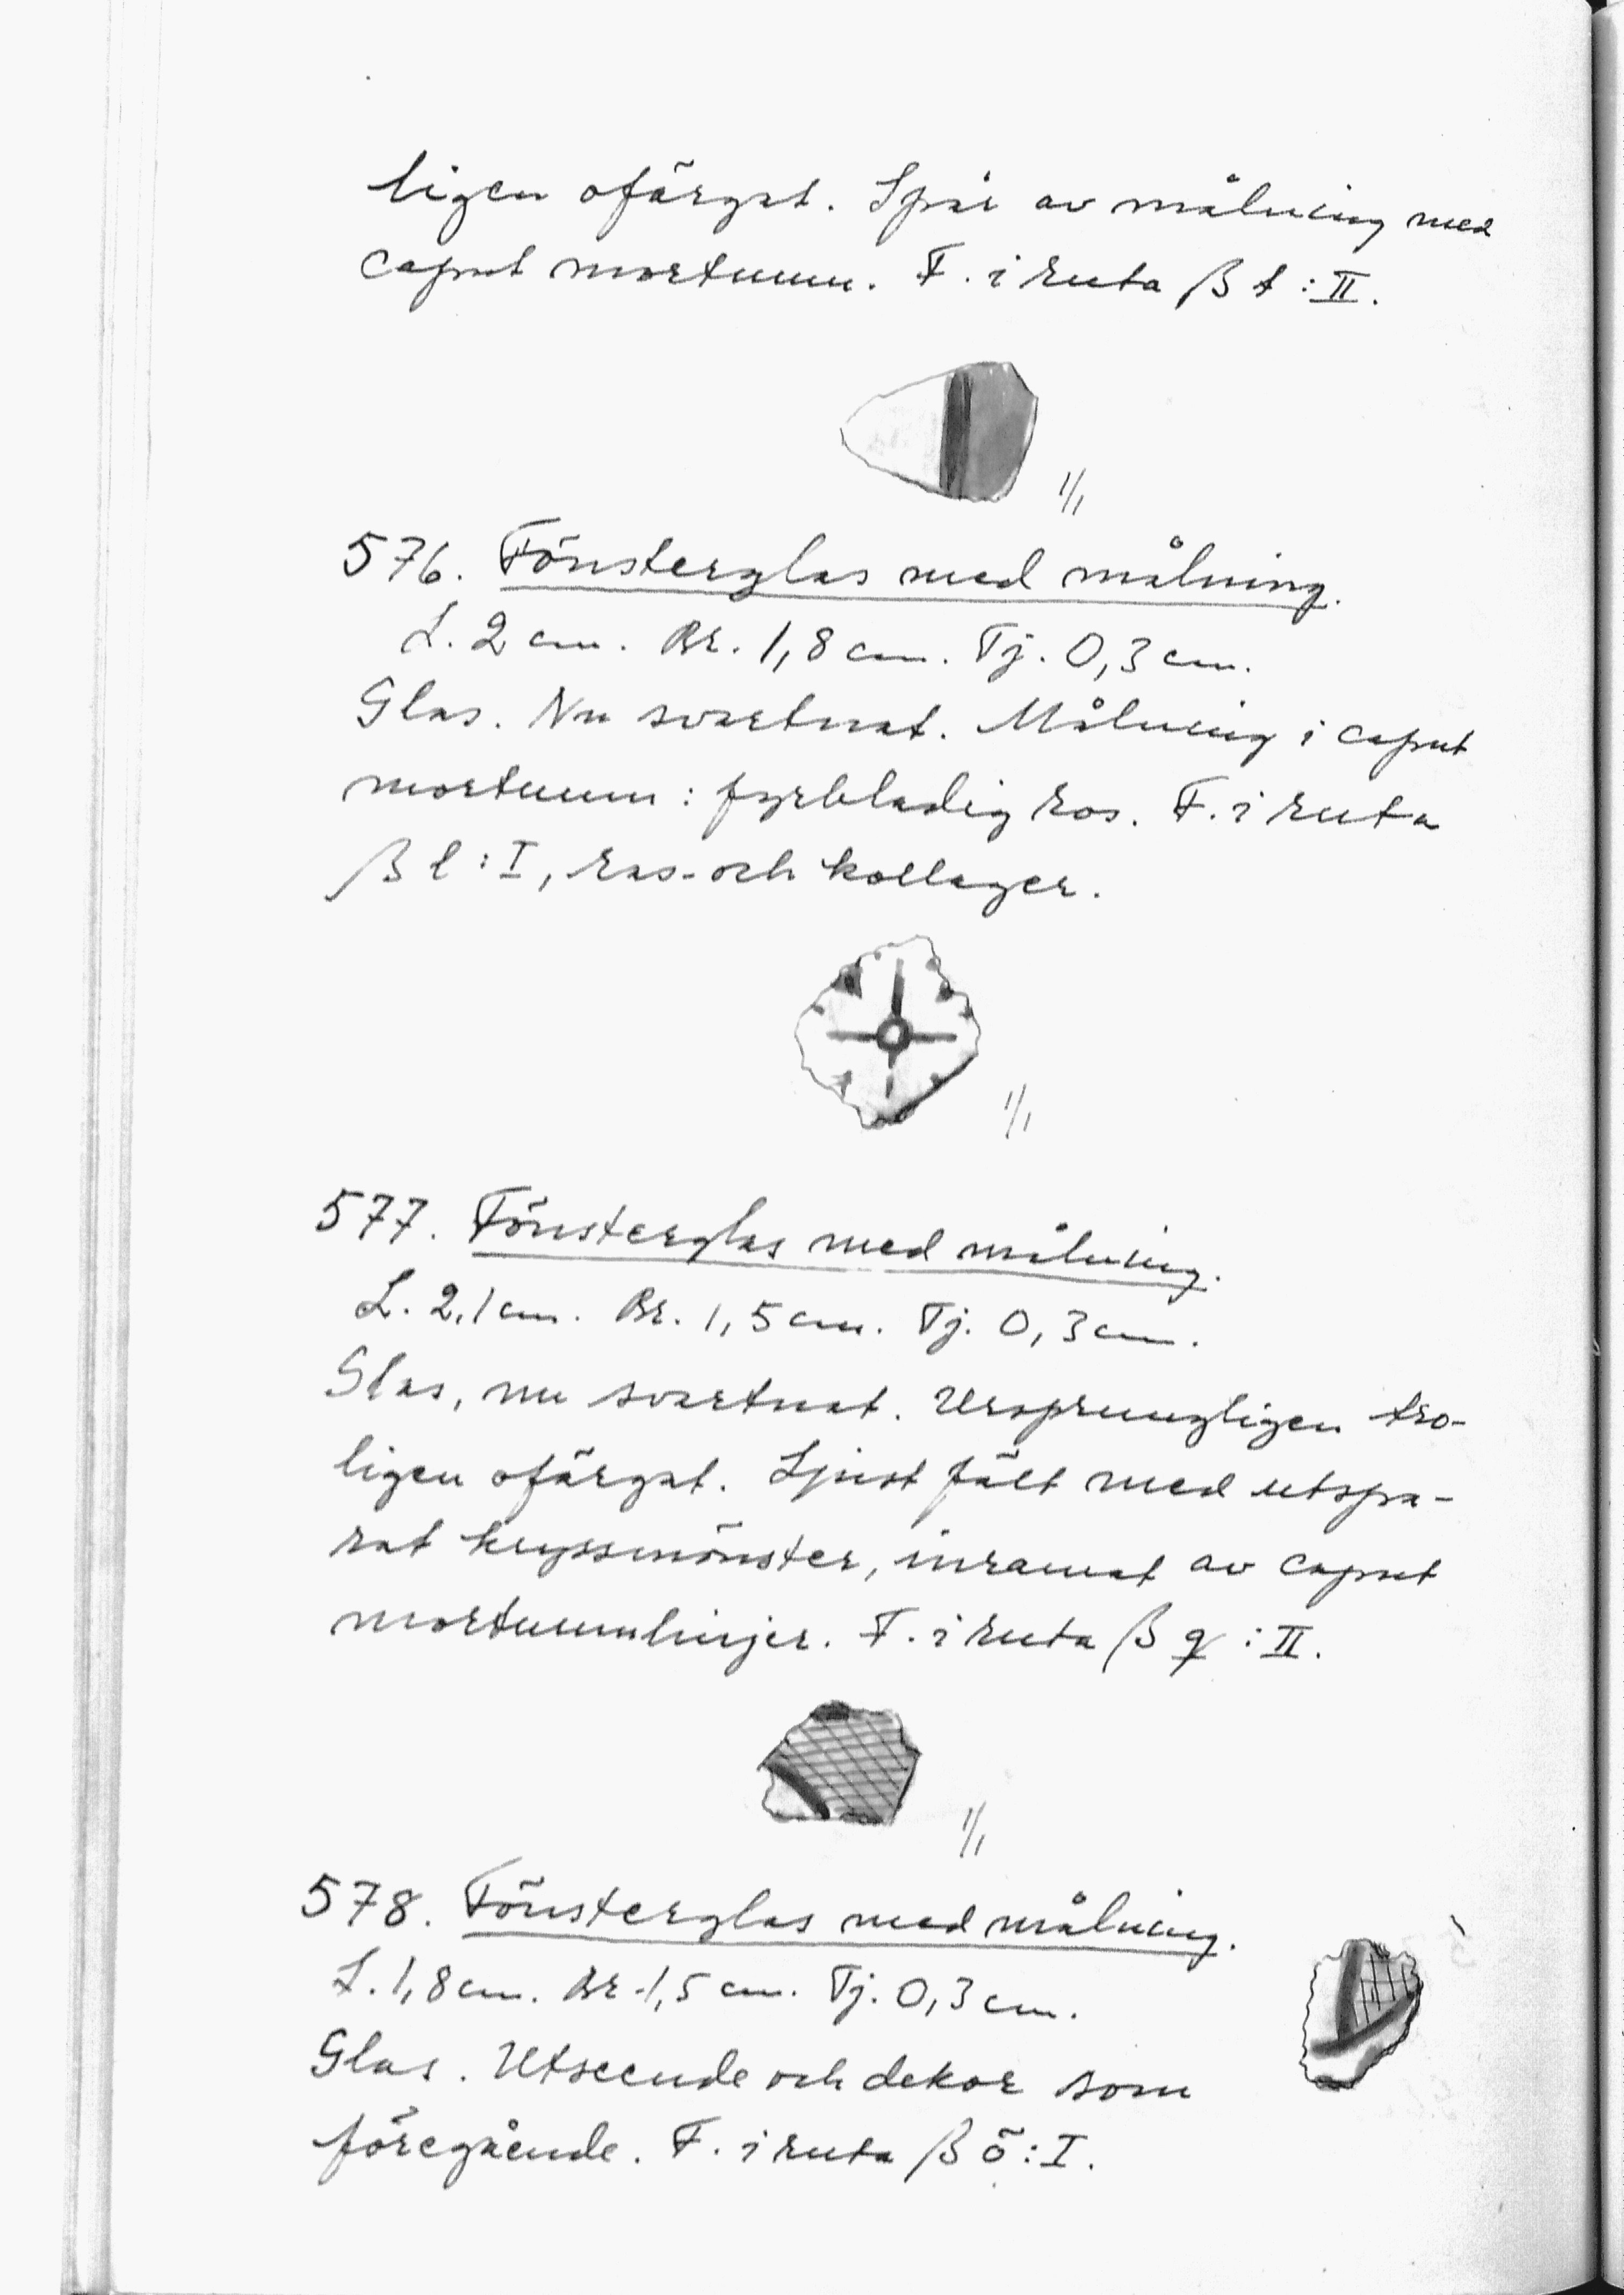 ligen ofärgat. Spår av målning med
caput mortuum. F. i ruta β t : II.
1/1
576. Fönsterglas med målning.
L. 2 cm. Br. 1,8 cm. Tj. 0,3 cm.
Glas. Nu svartnat. Målning i caput
mortuum : fyrbladig ros. F. i ruta
β l : I, ras- och kollager.
1/1
577. Fönsterglas med målning.
L. 2,1 cm. Br. 1,5 cm. Tj. 0,3 cm.
Glas, nu svartnat. Ursprungligen tro-
ligen ofärgat. Ljust fält med utspa-
rat kryssmönster, inramat av caput
mortuumlinjer. F. i ruta β q : II.
1/1
578. Fönsterglas med målning.
L. 1,8 cm. Br. 1,5 cm. Tj. 0,3 cm.
Glas. Utseende och dekor som
föregående. F. i ruta β ö : I.